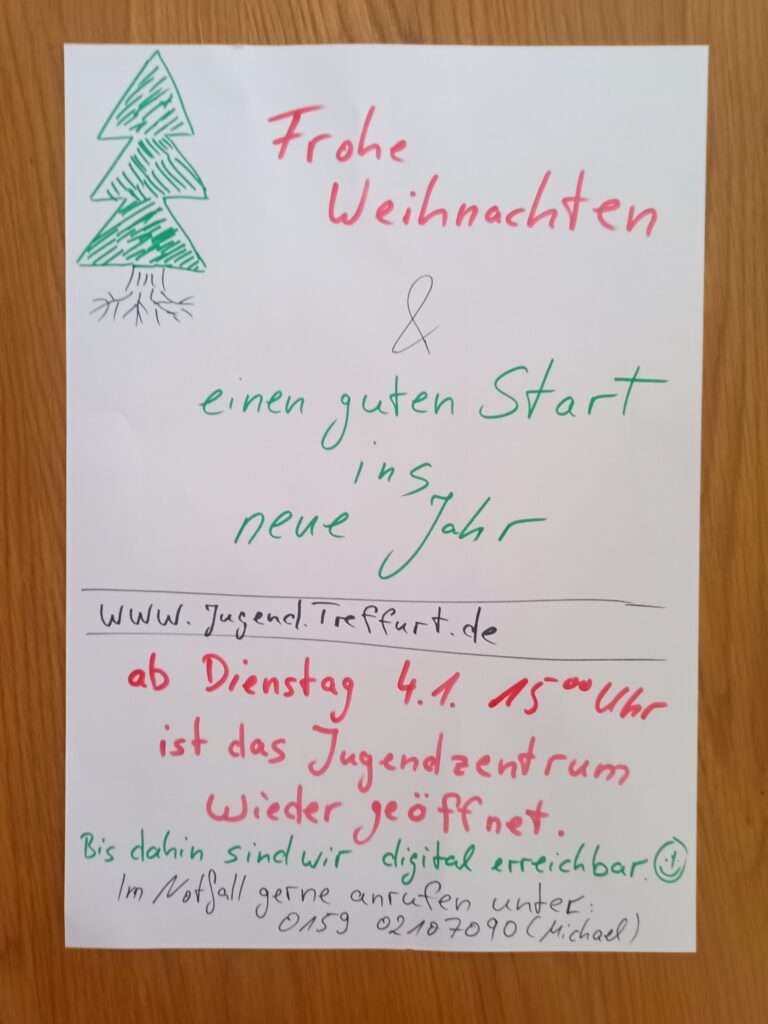 Frohe
Weihnachten
&
einen guten Start
ins
neue Jahr
www.Jugend.Treffurt.de
ab Dienstag 4.1. 15⁰⁰ Uhr
ist das Jugendzentrum
wieder geöffnet.
Bis dahin sind wir digital erreichbar.
Im Notfall gerne anrufen unter:
0159 02107090 (Michael)